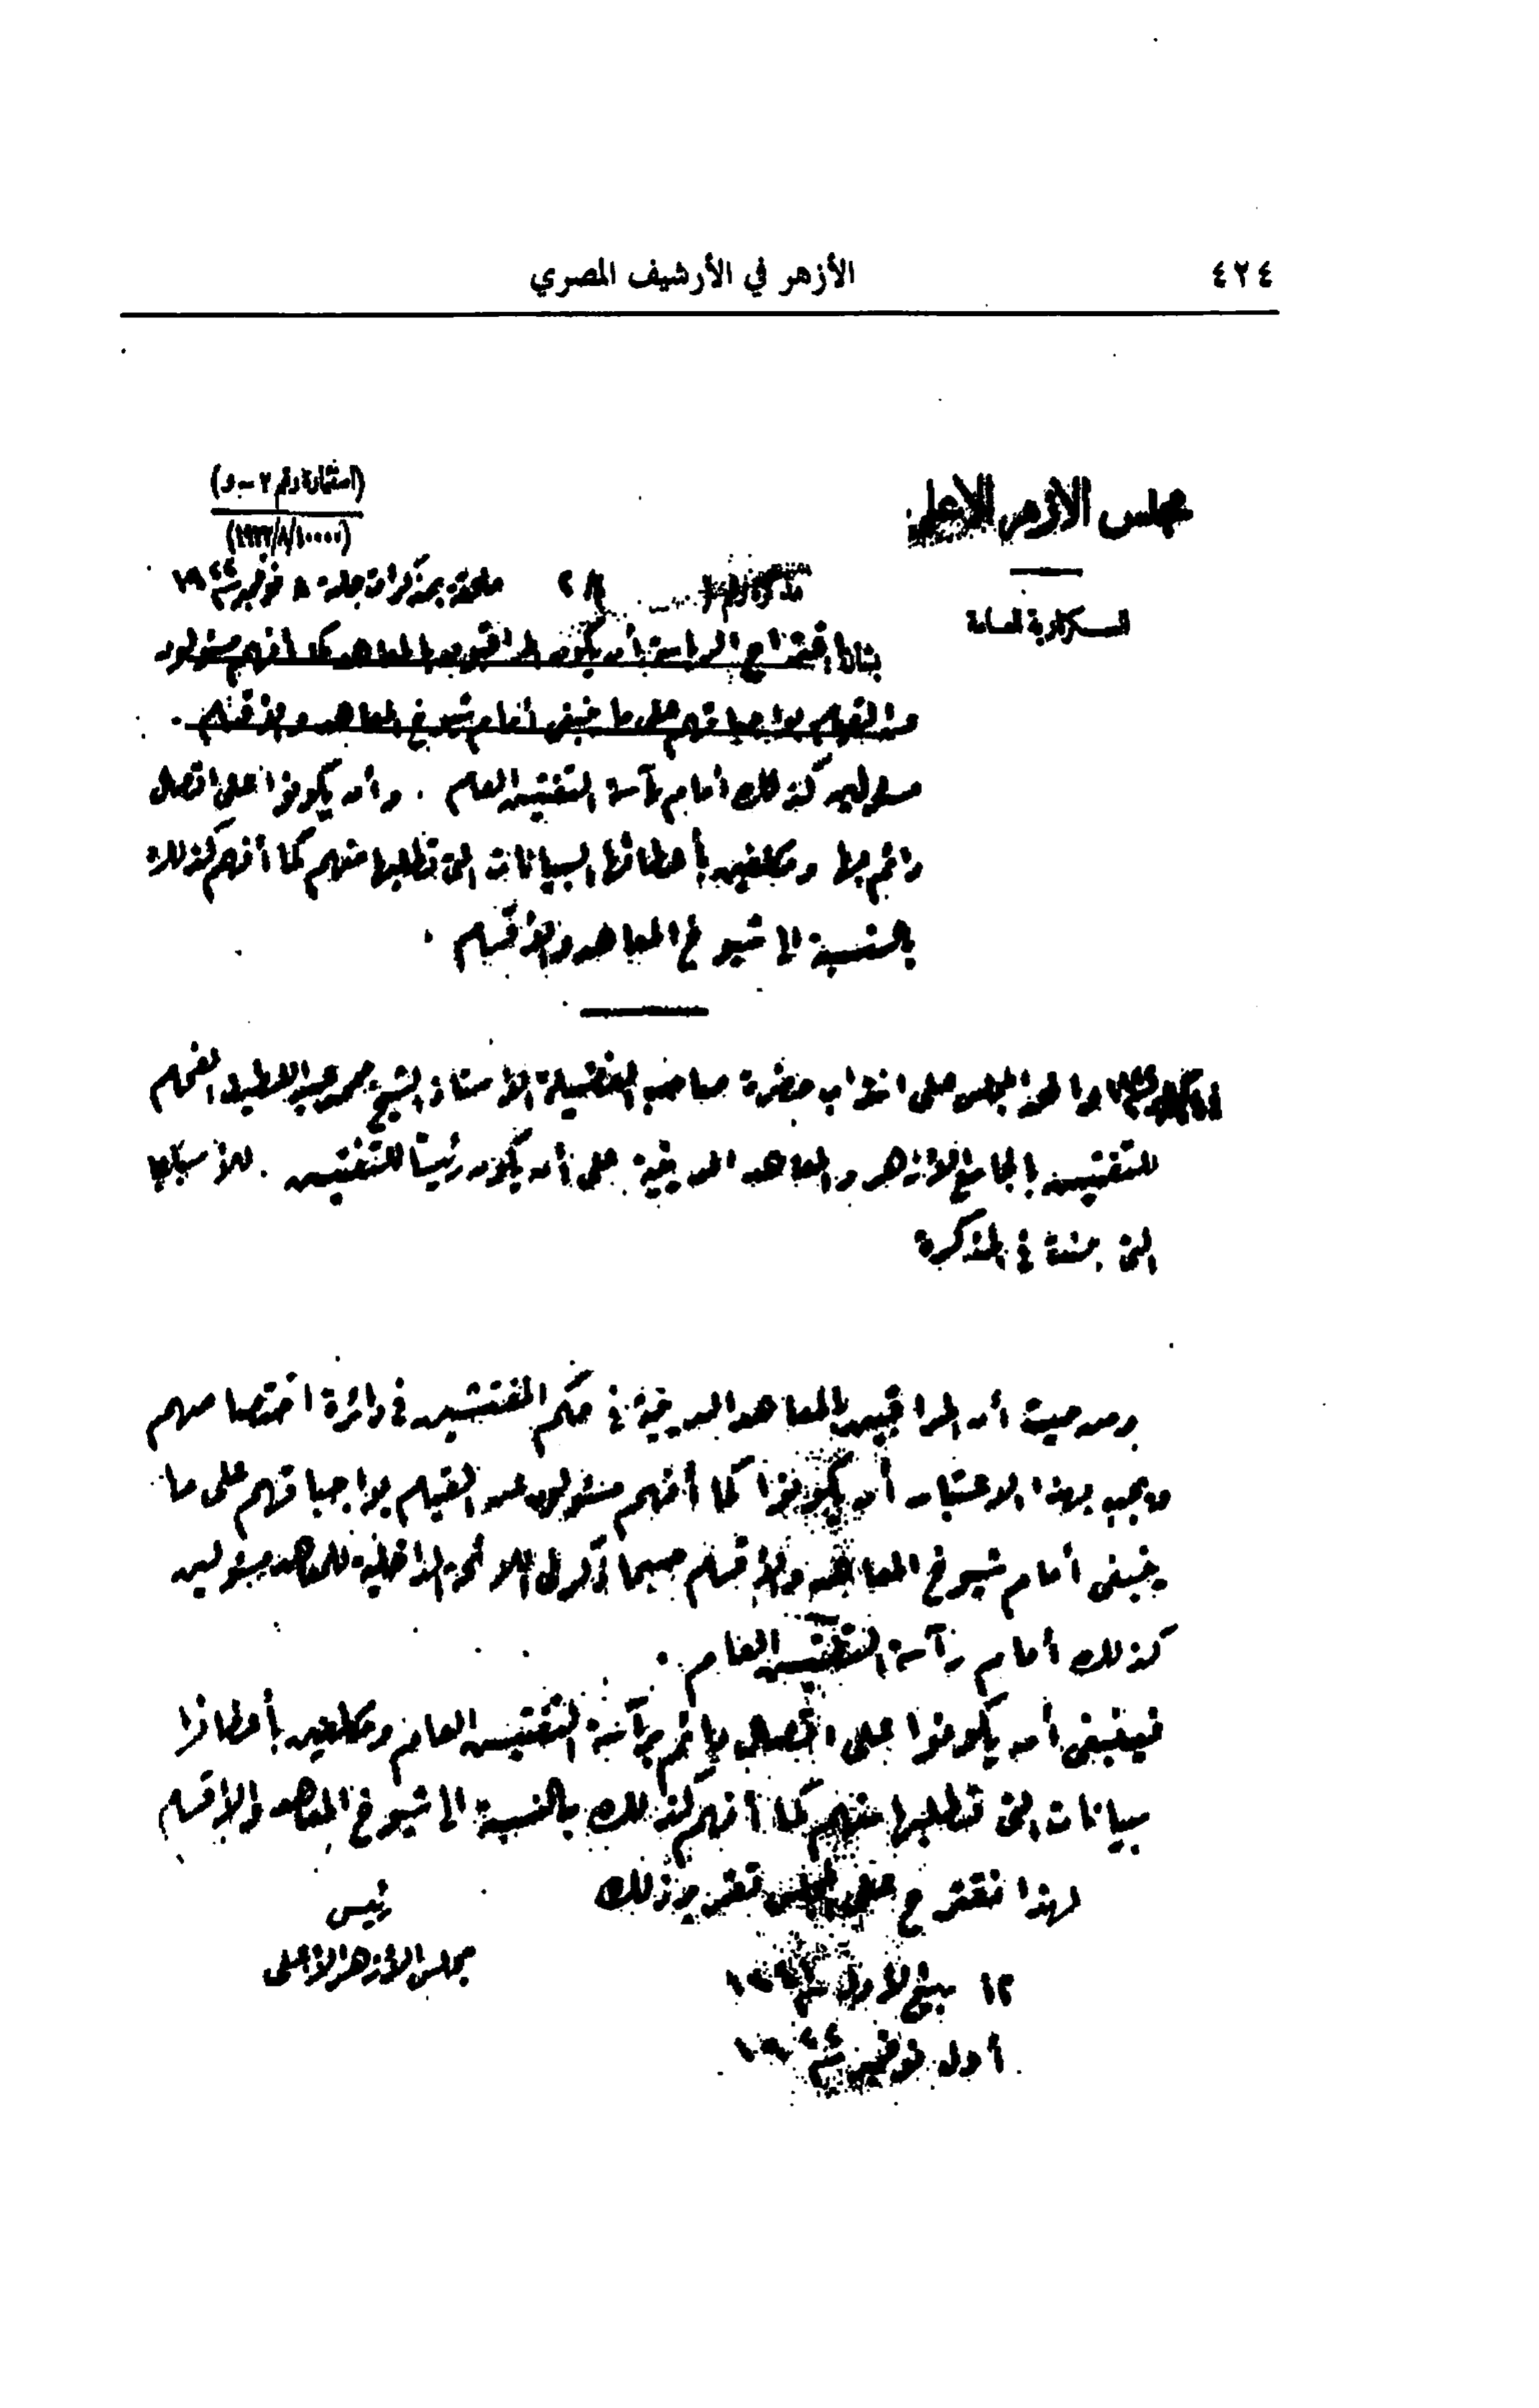 ٤٢٤
الأزهر في الأرشيف المصري
مجلس الأزهر الأعلى
السكرتارية العامة
(استمارة رقم ٢ - و)
ملحقة بمذكرات جلسة ٨ نوفمبر سنة ١٩٢٢
بشأن اقتراح الرياسة أن يكون المراقبون بالمعاهد كما أنهم مسئولون
عن القيام بواجباتهم على ما ينبغى أمام شيوخ المعاهد والأقسام .
مسئولين كذلك أمام رآسة التفتيش العام . وأن يكونوا على اتصال
دائم بها ومكلفين بأعطائها البيانات التى تطلبها منهم كما أنهم كذلك
بالنسبة الى شيوخ المعاهد والأقسام .
وافق المجلس على انتداب حضرة صاحب الفضيلة الأستاذ الشيخ محمد عبد اللطيف الفحام
للتفتيش بالجامع الأزهر والمعاهد الدينية على أن يكون رئيساً للتفتيش . للأسباب
التى بينت فى المذكرة
ومن حيث أن المراقبين بالمعاهد الدينية فى حكم المفتشين فى دائرة اختصاصهم
ويجب بهذا الاعتبار أن يكونوا كما أنهم مسئولون عن القيام بواجباتهم على ما
ينبغى أمام شيوخ المعاهد والأقسام حسبما ذكر فى اللائحة الداخلية للمعاهد مسئولين
كذلك أمام رآسة التفتيش العام .
فينبغى أن يكونوا على اتصال دائم برآسة التفتيش العام ومكلفين بأعطائها
بيانات التى تطلبها منهم كما أنهم كذلك بالنسبة الى شيوخ المعاهد والأقسام
لهذا نقترح على المجلس تقرير ذلك
رئيس
مجلس الأزهر الأعلى
١٢ ربيع الأول سنة
أول نوفمبر سنة ١٩٢٢